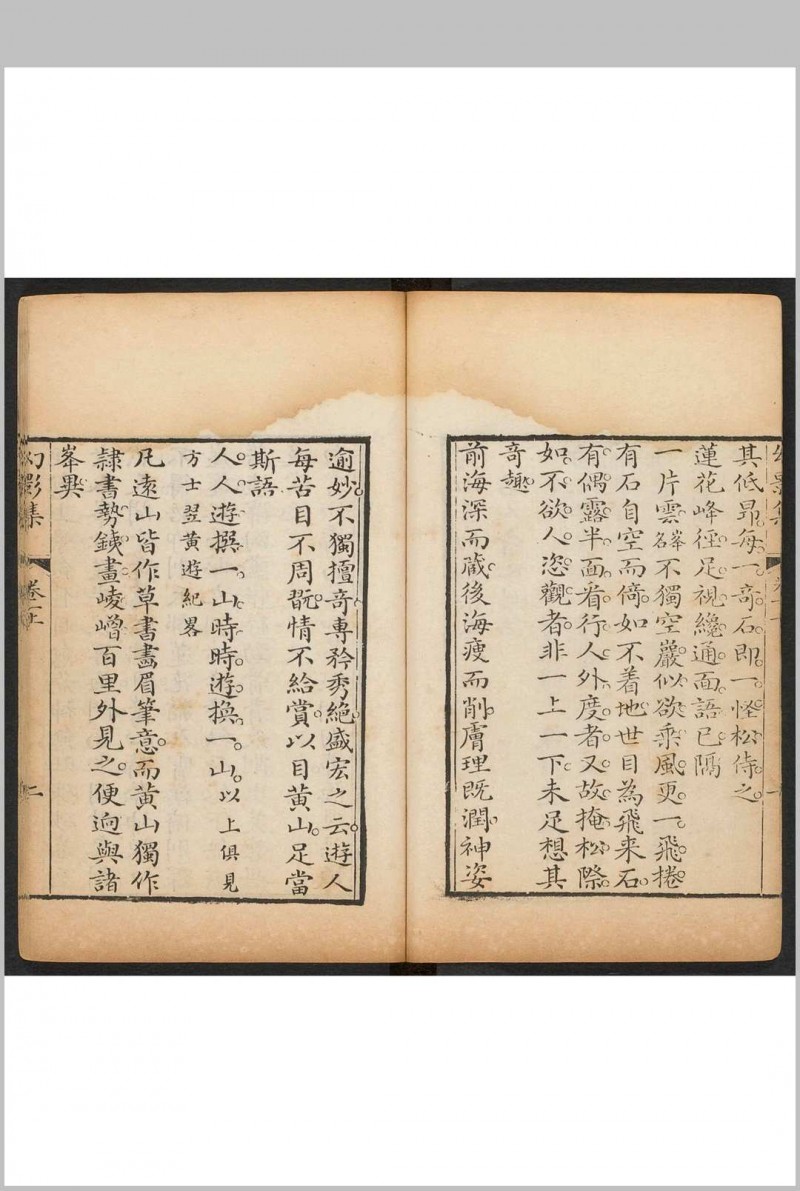 其低昻每一奇石即一怪松侍之
蓮花峰徑足視纔通面語已隔
一片雲峯名不獨空巖似欲乘風更一飛捲
有石自空而倚如不着地世目為飛来石
有偶露半面看行人外度者又故掩松際
如不欲人恣觀者非一上一下未足想其
奇趣
前海深而藏後海瘦而削膚理既潤神姿
逾妙不獨擅奇專矜秀絶盛宏之云遊人
每苦目不周翫情不給賞以目黄山足當
斯語
人人遊撰一山時時遊換一山以上俱見
方士翌黄遊紀畧
凡遠山皆作草書畵眉筆意而黄山獨作
隷書勢銕畫崚嶒百里外見之便逈與諸
峯異
幻影集
卷上
二